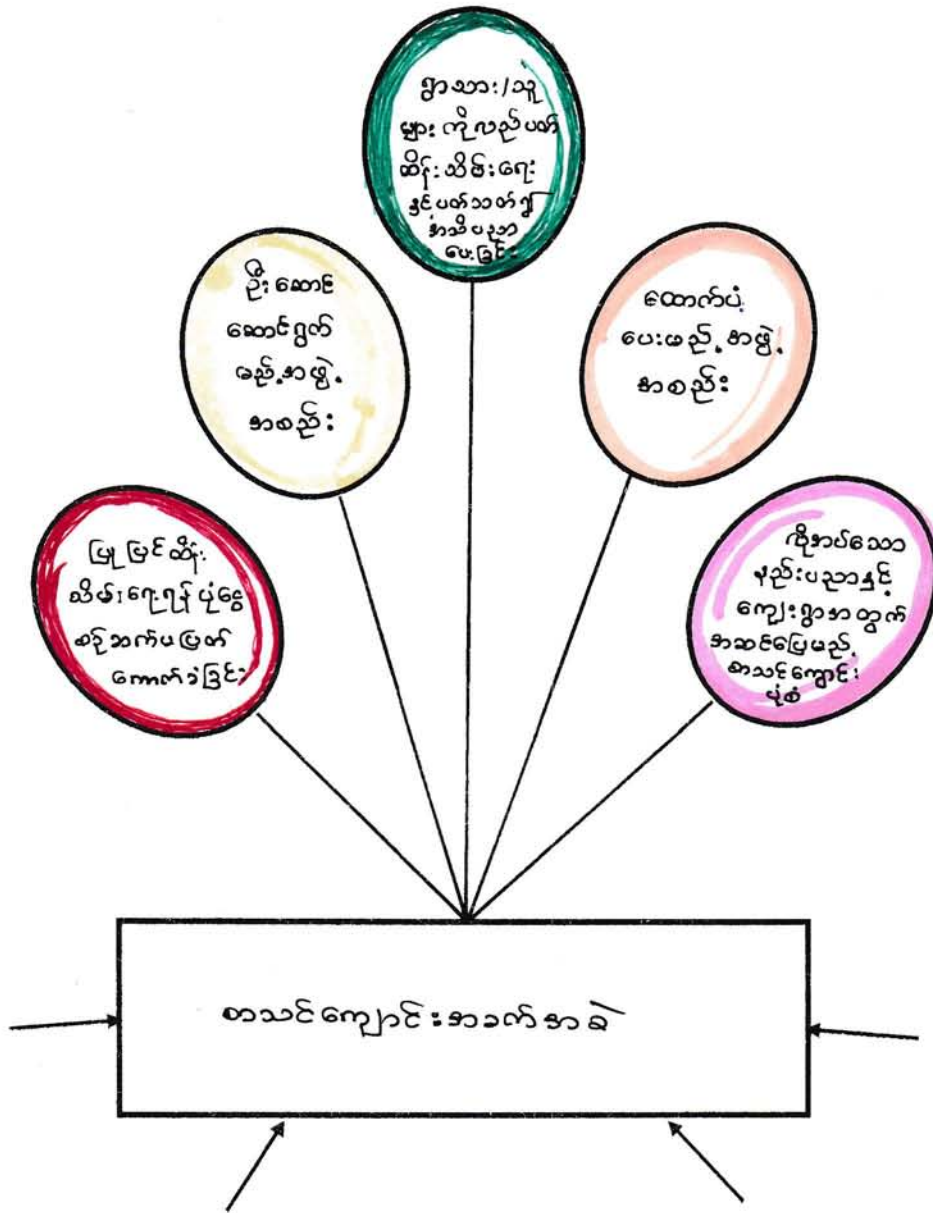 ရွာသား/သူ
များကိုလည်ပတ်
ထိန်းသိမ်းရေး
နှင့်ပတ်သတ်၍
အသိပညာ
ပေးခြင်း
ဦးဆောင်
ဆောင်ရွက်
မည့်အဖွဲ့
အစည်း
ထောက်ပံ့
ပေးမည့်အဖွဲ့
အစည်း
ပြုပြင်ထိန်း
သိမ်းရေးရန်ပုံငွေ
စဉ်ဆက်မပြတ်
ကောက်ခံခြင်း
လိုအပ်သော
နည်းပညာနှင့်
ကျေးရွာအတွက်
အဆင်ပြေမည့်
စာသင်ကျောင်း
ပုံစံ
စာသင်ကျောင်းအခက်အခဲ